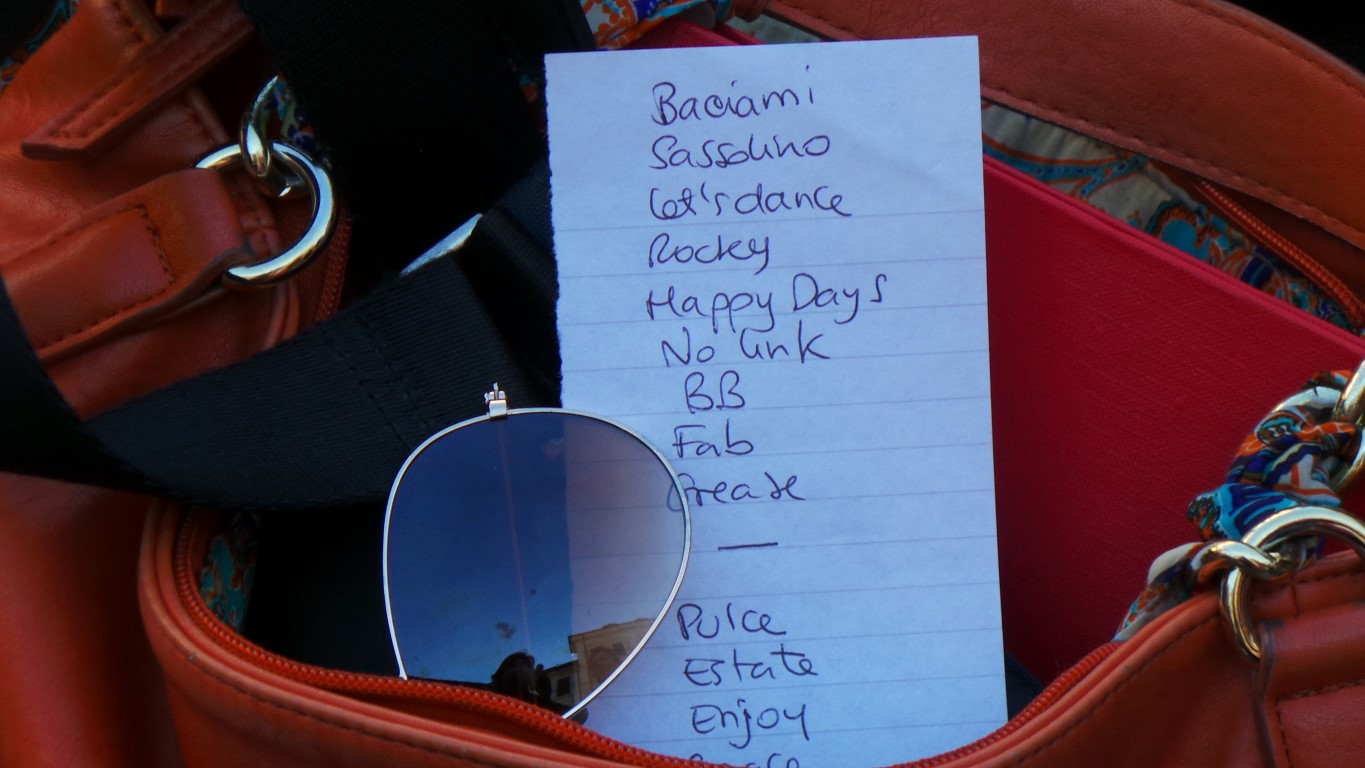 Baciami
Sassolino
Let's dance
Rocky
Happy Days
No link
BB
Fab
Grease
—
Pulce
Estate
Enjoy